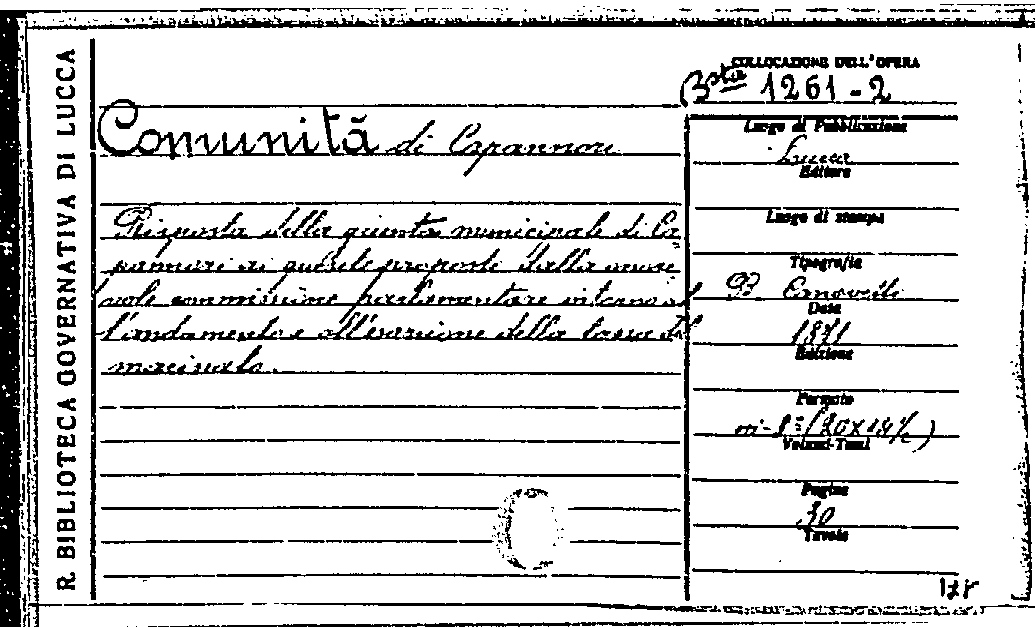 R. BIBLIOTECA GOVERNATIVA DI LUCCA
COLLOCAZIONE DELL'OPERA
Bsta 1261-2
Comunità di Capannori
Risposta della giunta municipale di Ca
pannori ai quesiti proposti dalla onore
vole commissione parlamentare intorno al
l'andamento e all'esazione della tassa del
macinato.
Luogo di Pubblicazione
Lucca
Editore
Luogo di stampa
Tipografia
B. Canovetti
Data
1871
Edizione
Formato
in-8° (20x14½)
Volumi-Tomi
Pagine
30
Tavole